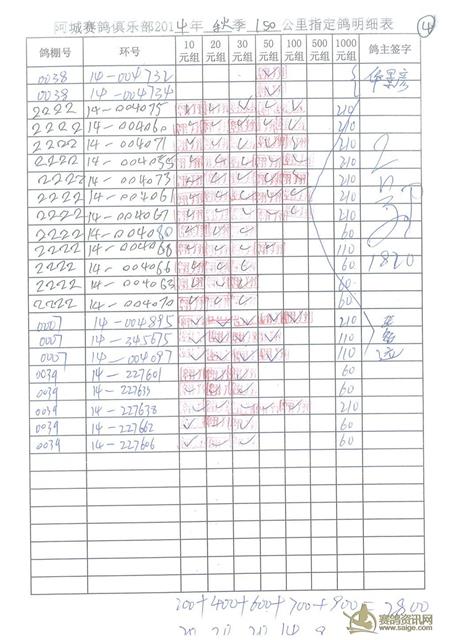 阿城赛鸽俱乐部2014年 秋季 150公里指定鸽明细表 ④
鸽棚号 环号 10元组 20元组 30元组 50元组 100元组 500元组 1000元组 鸽主签字
0038 14-004732 ✓
0038 14-004734 ✓
2222 14-004075 ✓ ✓ ✓ ✓ ✓ 210
2222 14-004060 ✓ ✓ ✓ ✓ ✓ 210
2222 14-004071 ✓ ✓ ✓ ✓ ✓ 210
2222 14-004055 ✓ ✓ ✓ ✓ ✓ 210
2222 14-004073 ✓ ✓ ✓ ✓ ✓ 210
2222 14-004061 ✓ ✓ ✓ ✓ ✓ 210
2222 14-004067 ✓ ✓ ✓ ✓ ✓ 210
2222 14-004080 ✓ ✓ ✓ 60
2222 14-004068 ✓ ✓ ✓ ✓ 110 1820
2222 14-004066 ✓ ✓ ✓ 60
2222 14-004063 ✓ ✓ ✓ 60
2222 14-004070 ✓ ✓ ✓ 60
0007 14-004895 ✓ ✓ ✓ ✓ ✓ 210
0007 14-345675 ✓ ✓ ✓ ✓ 110
0007 14-004097 ✓ ✓ ✓ ✓ 110
0039 14-227601 ✓ ✓ ✓ 60
0039 14-227635 ✓ ✓ ✓ 60
0039 14-227638 ✓ ✓ ✓ ✓ ✓ 210
0039 14-227662 ✓ ✓ ✓ 60
0039 14-227606 ✓ ✓ ✓ 60
200+400+600+700+900=2800
赛鸽资讯网
www.saige.com